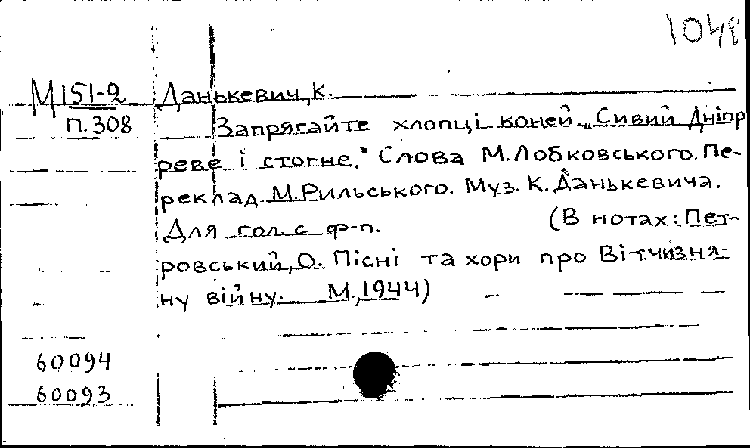 1048
М151-2 Данькевич, К.
П.308 Запрягайте хлопці коней. „Сивий Дніпр
реве і стогне." Слова М.Лобковського. Пе-
реклад М.Рильського. Муз. К.Данькевича.
Для гол. с ф-п. (В нотах: Пет-
ровський, О. Пісні та хори про Вітчизня-
ну війну. М., 1944)
60094
60093